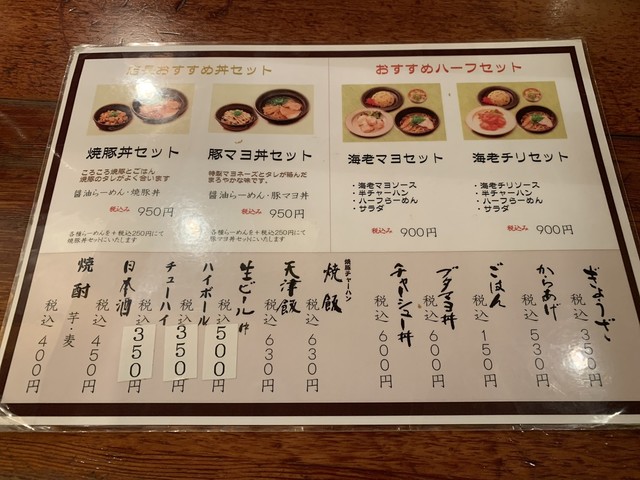 おすすめ丼セット
焼豚丼セット
ころころ焼豚とごはん
焼豚のタレがよく合います
醤油らーめん・焼豚丼
税込み 950円
各種らーめんを+税込250円にて
焼豚丼セットにいたします
豚マヨ丼セット
特製マヨネーズとタレが絡んだ
まろやかな味です。
醤油らーめん・豚マヨ丼
税込み 950円
各種らーめんを+税込250円にて
豚マヨ丼セットにいたします
おすすめハーフセット
海老マヨセット
・海老マヨソース
・半チャーハン
・ハーフらーめん
・サラダ
税込み 900円
海老チリセット
・海老チリソース
・半チャーハン
・ハーフらーめん
・サラダ
税込み 900円
ぎょうざ
税込350円
からあげ
税込530円
ごはん
税込150円
ブタマヨ丼
税込600円
チャーシュー丼
税込600円
焼豚チャーハン
焼飯
税込630円
天津飯
税込630円
生ビール
税込500円
ハイボール
税込350円
チューハイ
税込350円
日本酒
税込450円
焼酎
芋・麦
税込400円